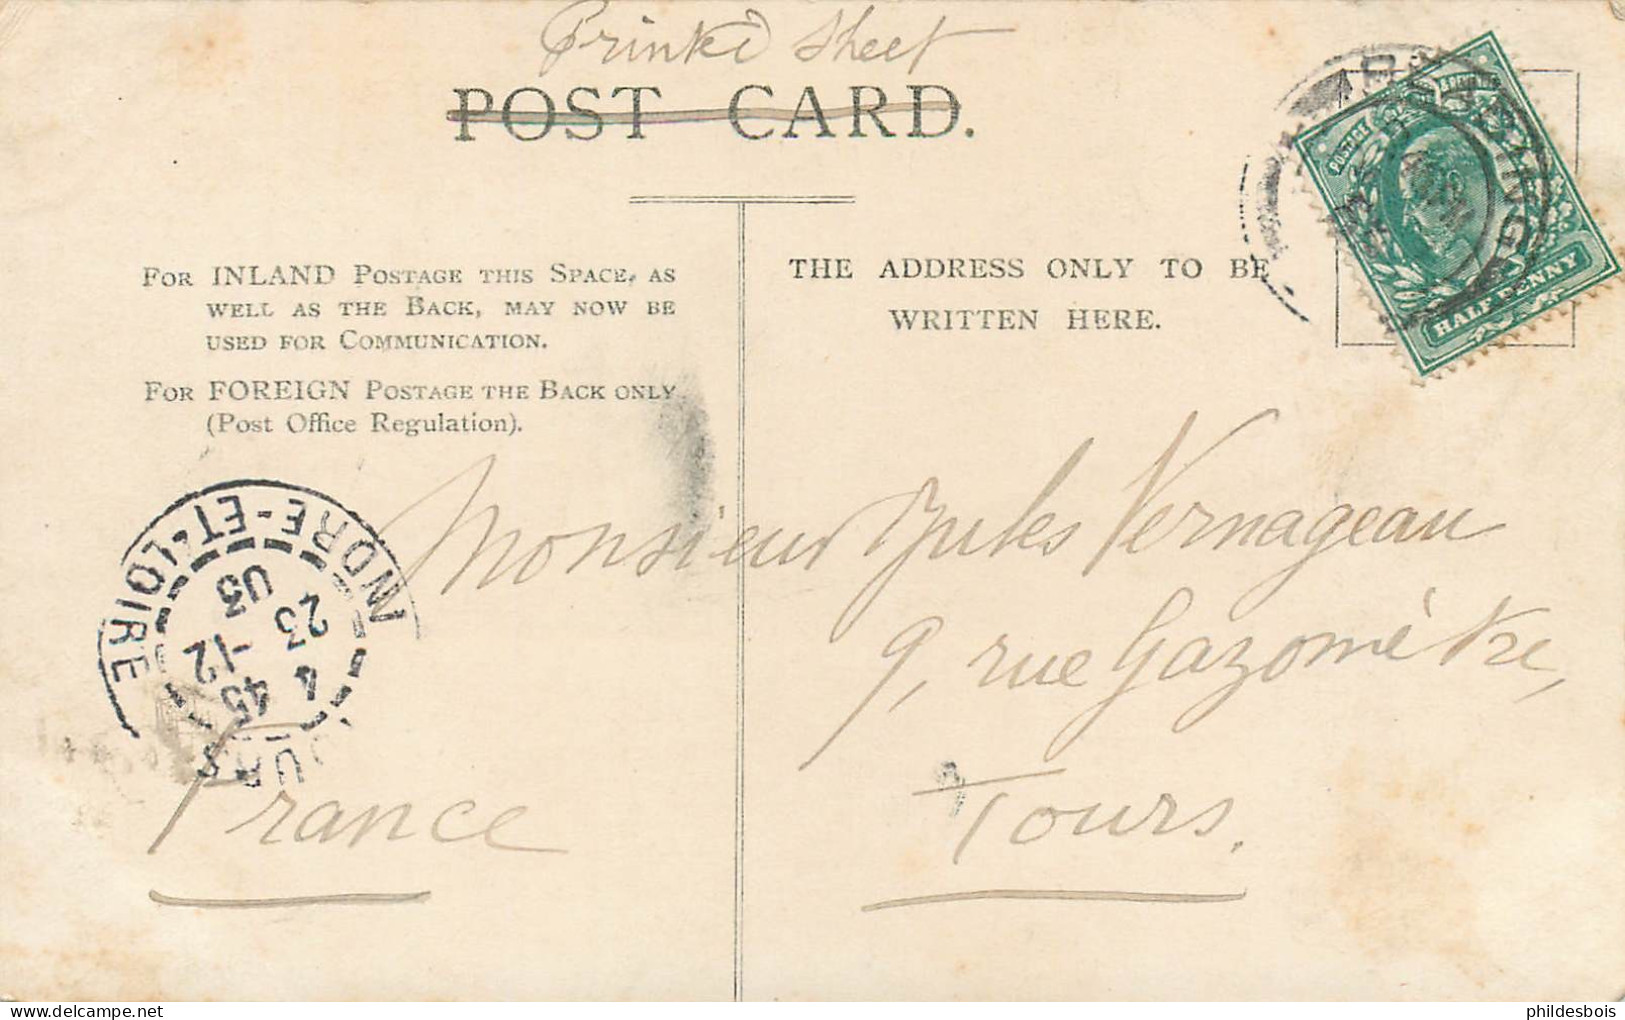 Printed Sheet
POST CARD.
FOR INLAND POSTAGE THIS SPACE, AS
WELL AS THE BACK, MAY NOW BE
USED FOR COMMUNICATION.
FOR FOREIGN POSTAGE THE BACK ONLY
(Post Office Regulation).
THE ADDRESS ONLY TO BE
WRITTEN HERE.
POSTAGE
HALF PENNY
READING
Monsieur Jules Vernageau
9, rue Gazomètre,
Tours.
France
TOURS
INDRE-ET-LOIRE
4 45
23 -12
03
phildesbois